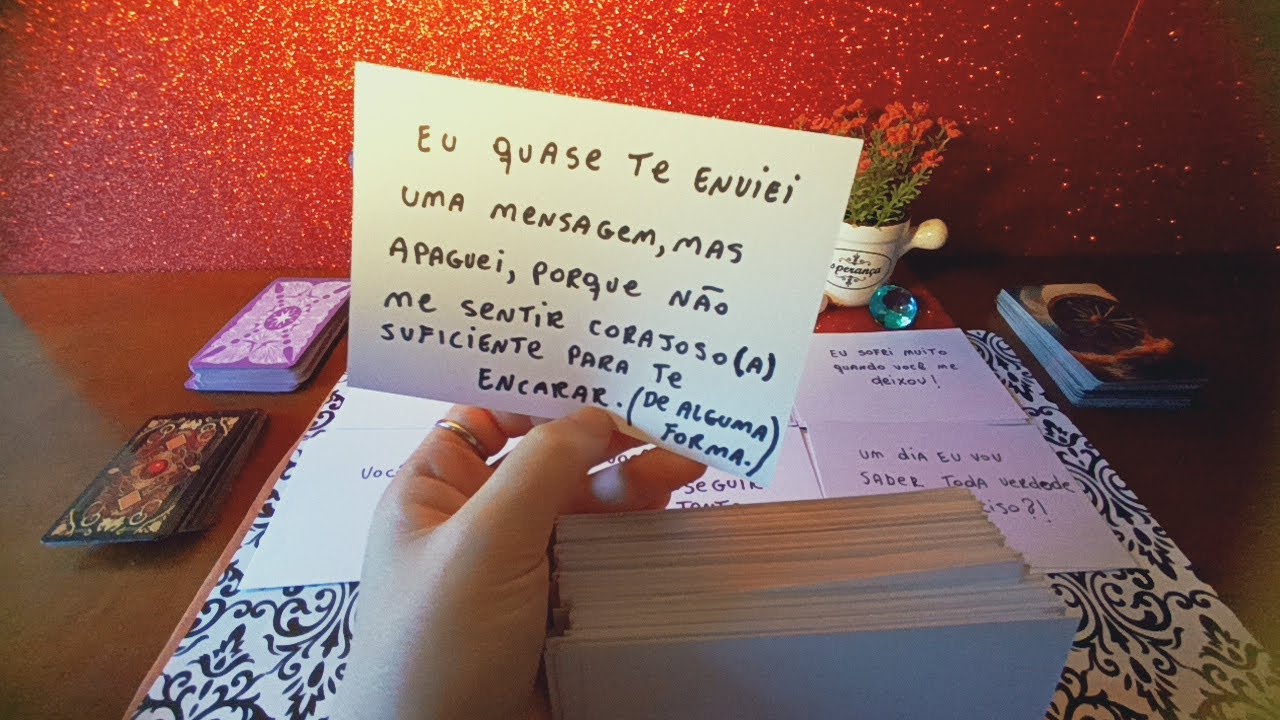 EU QUASE TE ENVIEI
UMA MENSAGEM, MAS
APAGUEI, PORQUE NÃO
ME SENTIR CORAJOSO(A)
SUFICIENTE PARA TE
ENCARAR. (DE ALGUMA
FORMA.)
EU SOFRI MUITO
QUANDO VOCÊ ME
DEIXOU!
UM DIA EU VOU
SABER TODA VERDADE
SEGUIR